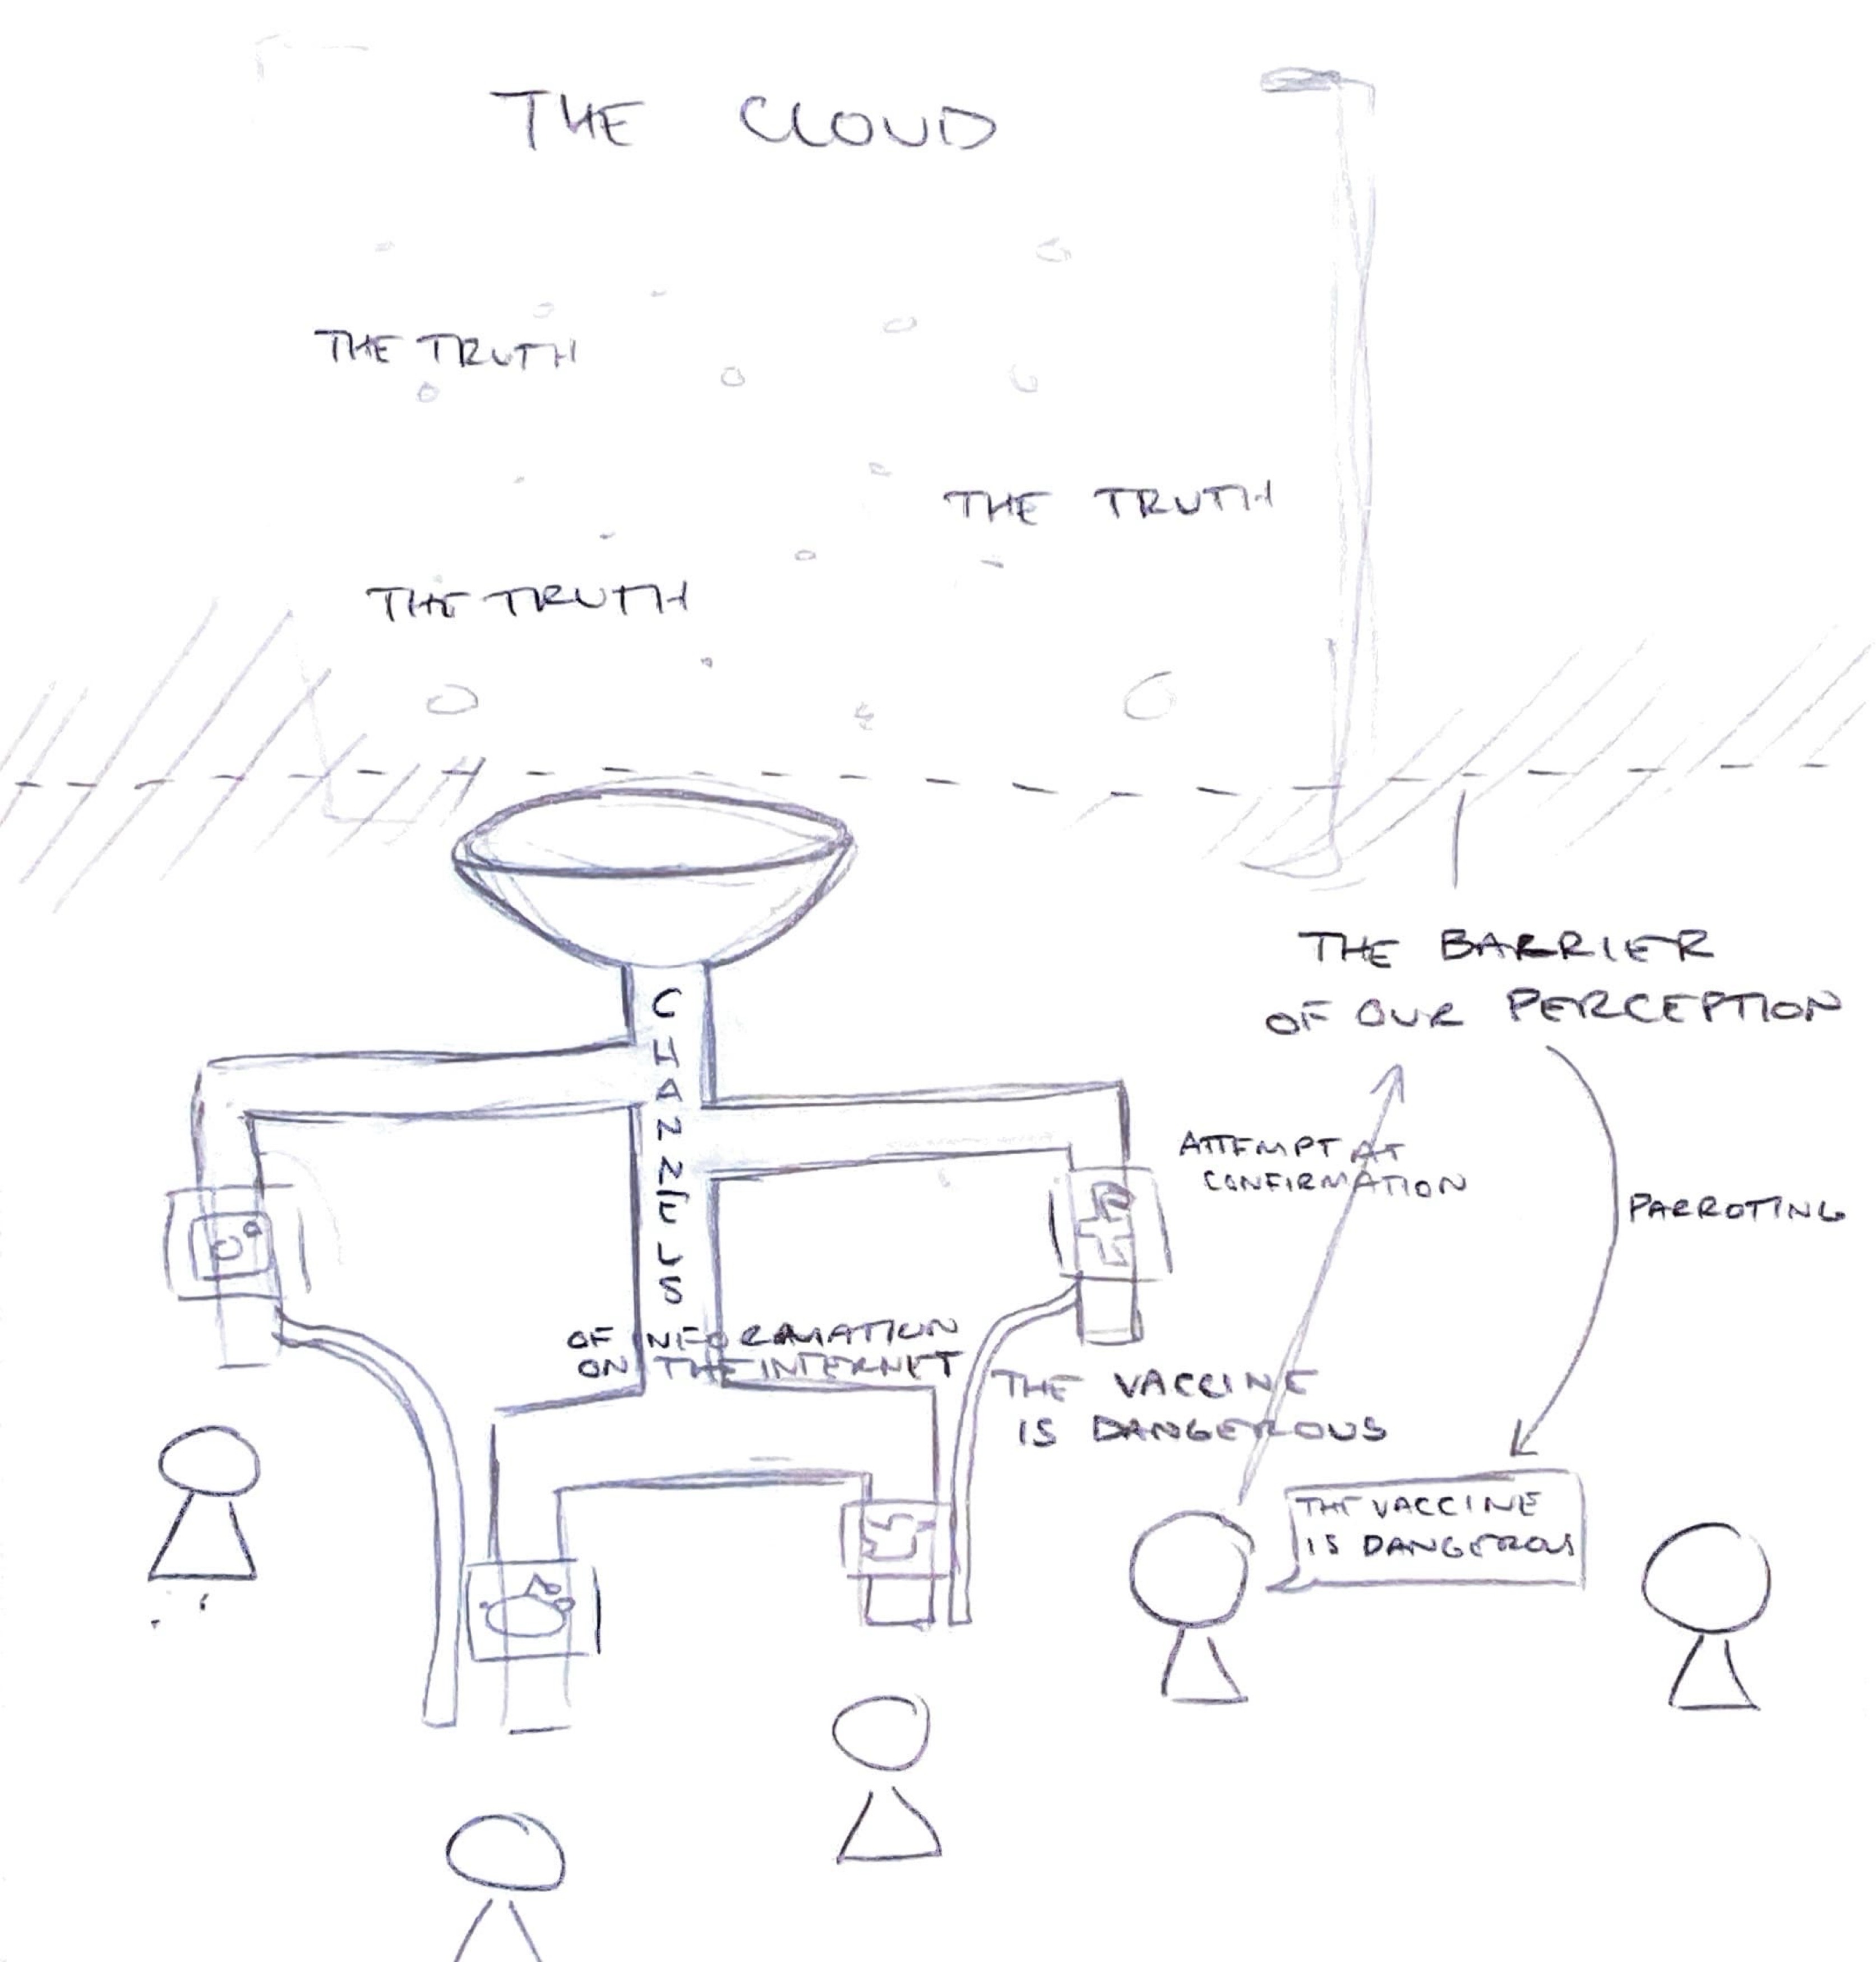 THE CLOUD
THE TRUTH
THE TRUTH
THE TRUTH
THE BARRIER
OF OUR PERCEPTION
CHANNELS
OF INFORMATION
ON THE INTERNET
ATTEMPT AT
CONFIRMATION
PARROTING
THE VACCINE
IS DANGEROUS
THE VACCINE
IS DANGEROUS